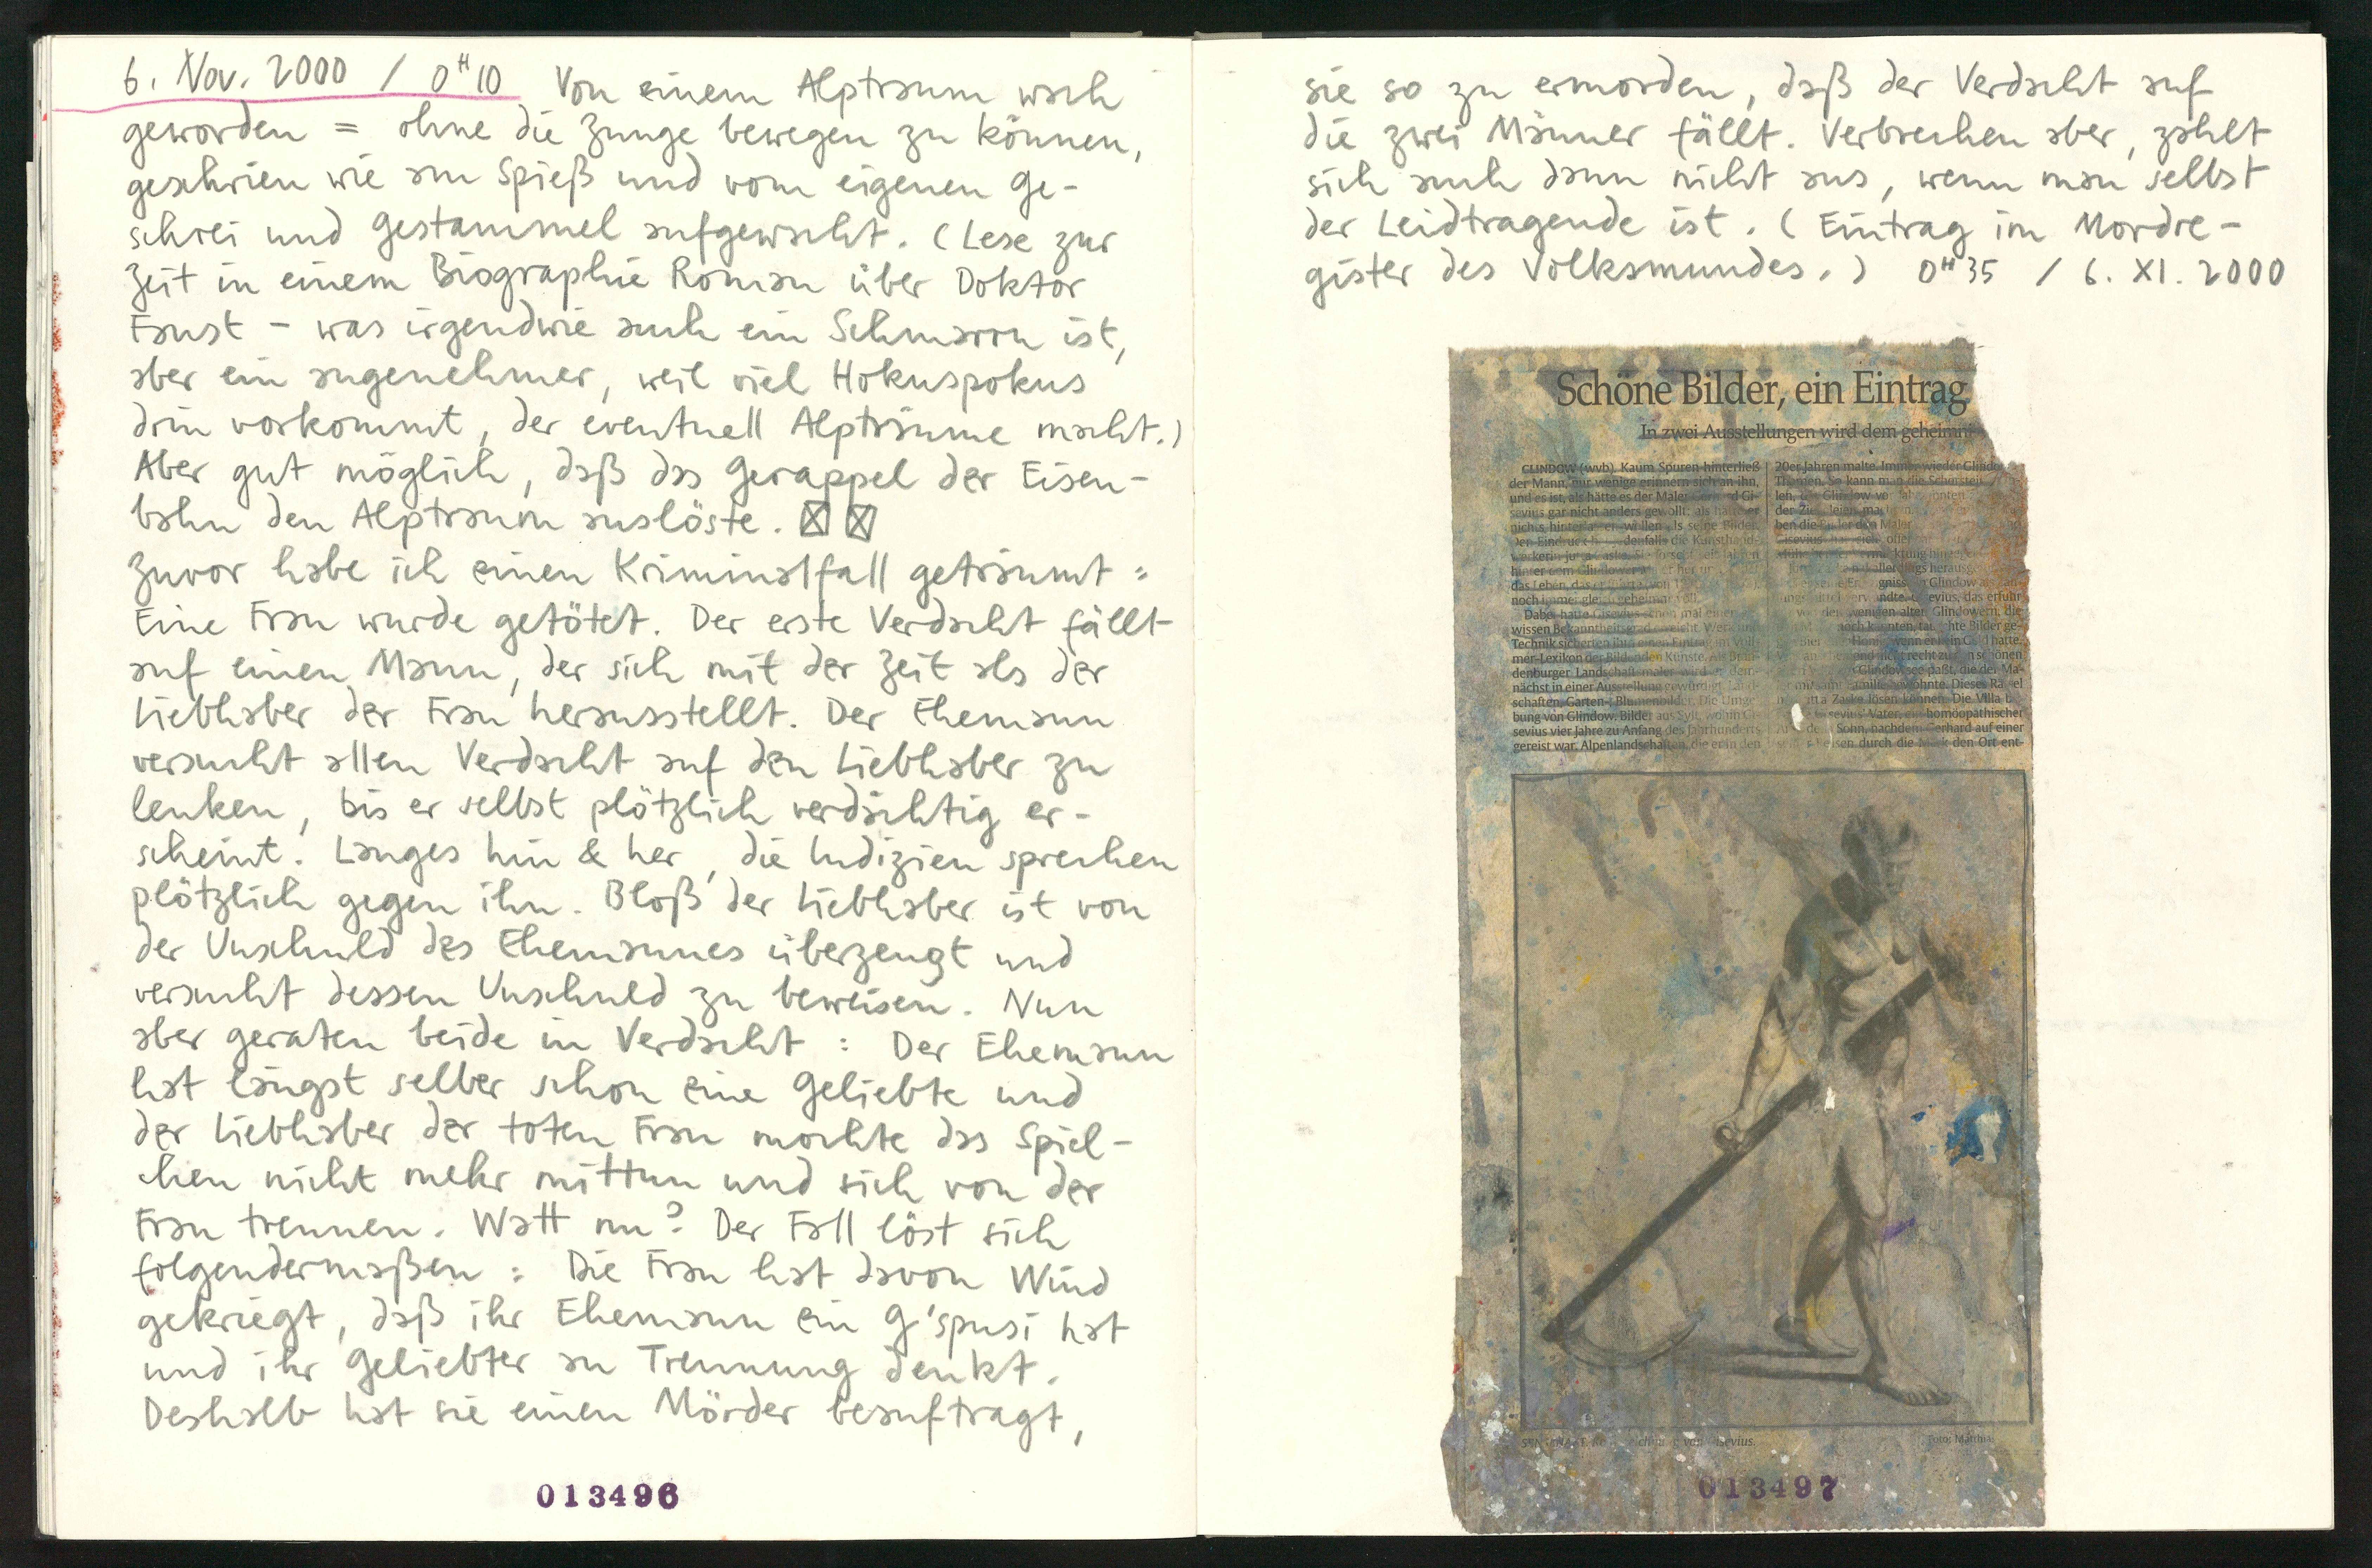 6. Nov. 2000 / 0ᴴ10 Von einem Alptraum wach
geworden = ohne die Zunge bewegen zu können,
geschrien wie am Spieß und vom eigenen Ge-
schrei und Gestammel aufgewacht. (Lese zur
Zeit in einem Biographie Roman über Doktor
Faust – was irgendwie auch ein Schmarrn ist,
aber ein angenehmer, weil viel Hokuspokus
drin vorkommt, der eventuell Alpträume macht.)
Aber gut möglich, daß das Gerappel der Eisen-
bahn den Alptraum auslöste. ☒ ☒
Zuvor habe ich einen Kriminalfall geträumt =
Eine Frau wurde getötet. Der erste Verdacht fällt
auf einen Mann, der sich mit der Zeit als der
Liebhaber der Frau herausstellt. Der Ehemann
versucht allen Verdacht auf den Liebhaber zu
lenken, bis er selbst plötzlich verdächtig er-
scheint. Langes hin & her, die Indizien sprechen
plötzlich gegen ihn. Bloß der Liebhaber ist von
der Unschuld des Ehemannes überzeugt und
versucht dessen Unschuld zu beweisen. Nun
aber geraten beide in Verdacht : Der Ehemann
hat längst selber schon eine Geliebte und
der Liebhaber der toten Frau mochte das Spiel-
chen nicht mehr mittun und sich von der
Frau trennen. Watt nu? Der Fall löst sich
folgendermaßen : Die Frau hat davon Wind
gekriegt, daß ihr Ehemann ein G'spusi hat
und ihr Geliebter an Trennung denkt.
Deshalb hat sie einen Mörder beauftragt,
013496
sie so zu ermorden, daß der Verdacht auf
die zwei Männer fällt. Verbrechen aber, zahlt
sich auch dann nicht aus, wenn man selbst
der Leidtragende ist. (Eintrag im Mordre-
gister des Volksmundes.) 0ᴴ35 / 6. XI. 2000
Schöne Bilder, ein Eintrag
In zwei Ausstellungen wird dem geheimni
GLINDOW (wvb). Kaum Spuren hinterließ
der Mann, nur wenige erinnern sich an ihn,
und es ist, als hätte es der Maler Gerhard Gi-
sevius gar nicht anders gewollt, als hätte er
nichts hinterlassen wollen als seine Bilder.
Der Eindruck denfalls die Kunsthand-
werkerin Jutta Zaske. Sie forscht seit Jahren
hinter dem Glindower her und
das Leben, das
noch immer geheimnisvoll.
Dabei hatte Gisevius schon mal einen
wissen Bekanntheitsgrad erreicht. Werk und
Technik sicherten ihm einen Eintrag im Voll-
mer-Lexikon der Bildenden Künste. Als Bran-
denburger Landschaftsmaler wird er dem-
nächst in einer Ausstellung gewürdigt. Land-
schaften, Garten-, Blumenbilder. Die Umge-
bung von Glindow. Bilder aus Sylt, wohin Gi-
sevius vier Jahre zu Anfang des Jahrhunderts
gereist war. Alpenlandschaften, die er in den
20er Jahren malte. Immer wieder Glindo
Themen. So kann man die Schornstei
len, Glindow vor
der Zi leien, ma
ben die Bilder den Maler
Gisevius sich offe
allerdings herausge
Glindow als
evius, das erfuhr
wenigen alten Glindowern, die
noch kannten, tauschte Bilder ge-
wenn er kein Geld hatte.
nicht recht zu den schönen
Glindowsee paßt, die der Ma-
mitsamt Familie bewohnte. Dieses Rätsel
Jutta Zaske lösen können. Die Villa
sevius' Vater, ein homöopathischer
Sohn, nachdem Gerhard auf einer
seiner Reisen durch die Mark den Ort ent-
von Gisevius.
Foto: Matthia
013497